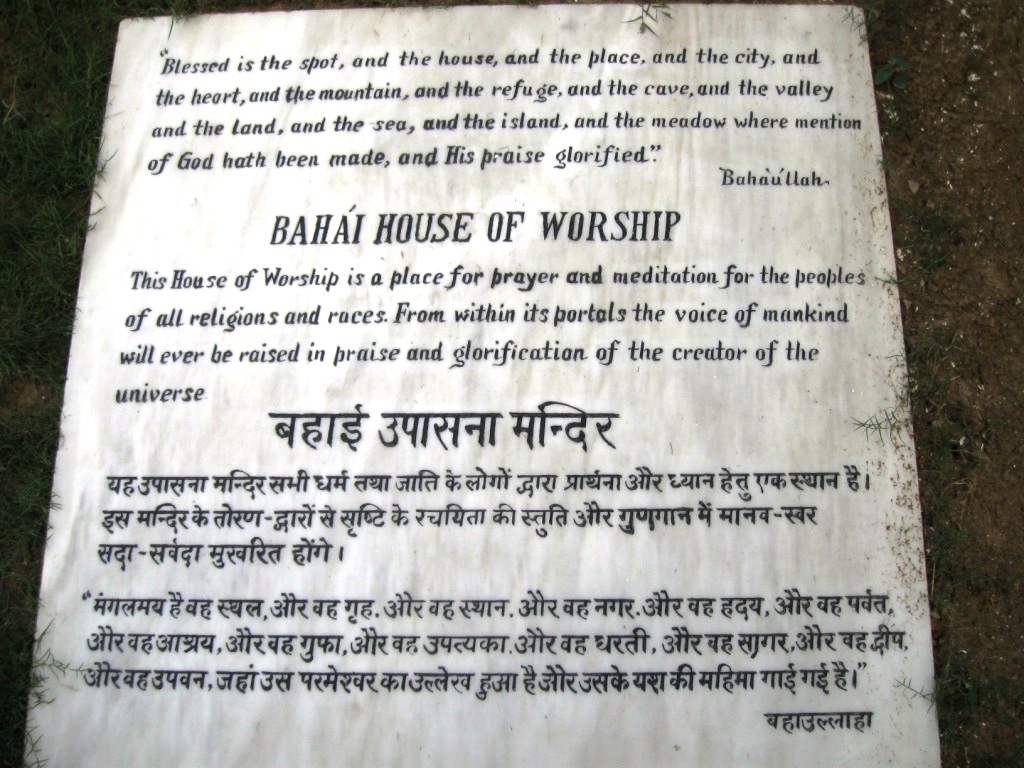 "Blessed is the spot, and the house, and the place, and the city, and
the heart, and the mountain, and the refuge, and the cave, and the valley
and the land, and the sea, and the island, and the meadow where mention
of God hath been made, and His praise glorified".
Bahá'u'llah
BAHÁI HOUSE OF WORSHIP
This House of Worship is a place for prayer and meditation for the peoples
of all religions and races. From within its portals the voice of mankind
will ever be raised in praise and glorification of the creator of the
universe
बहाई उपासना मन्दिर
यह उपासना मन्दिर सभी धर्म तथा जाति के लोगों द्वारा प्रार्थना और ध्यान हेतु एक स्थान है।
इस मन्दिर के तोरण-द्वारों से सृष्टि के रचयिता की स्तुति और गुणगान में मानव-स्वर
सदा-सर्वदा मुखरित होंगे।
"मंगलमय है वह स्थल, और वह गृह, और वह स्थान, और वह नगर, और वह हृदय, और वह पर्वत,
और वह आश्रय, और वह गुफा, और वह उपत्यका, और वह धरती, और वह सागर, और वह द्वीप,
और वह उपवन, जहां उस परमेश्वर का उल्लेख हुआ है और उसके यश की महिमा गाई गई है।"
बहाउल्लाहा